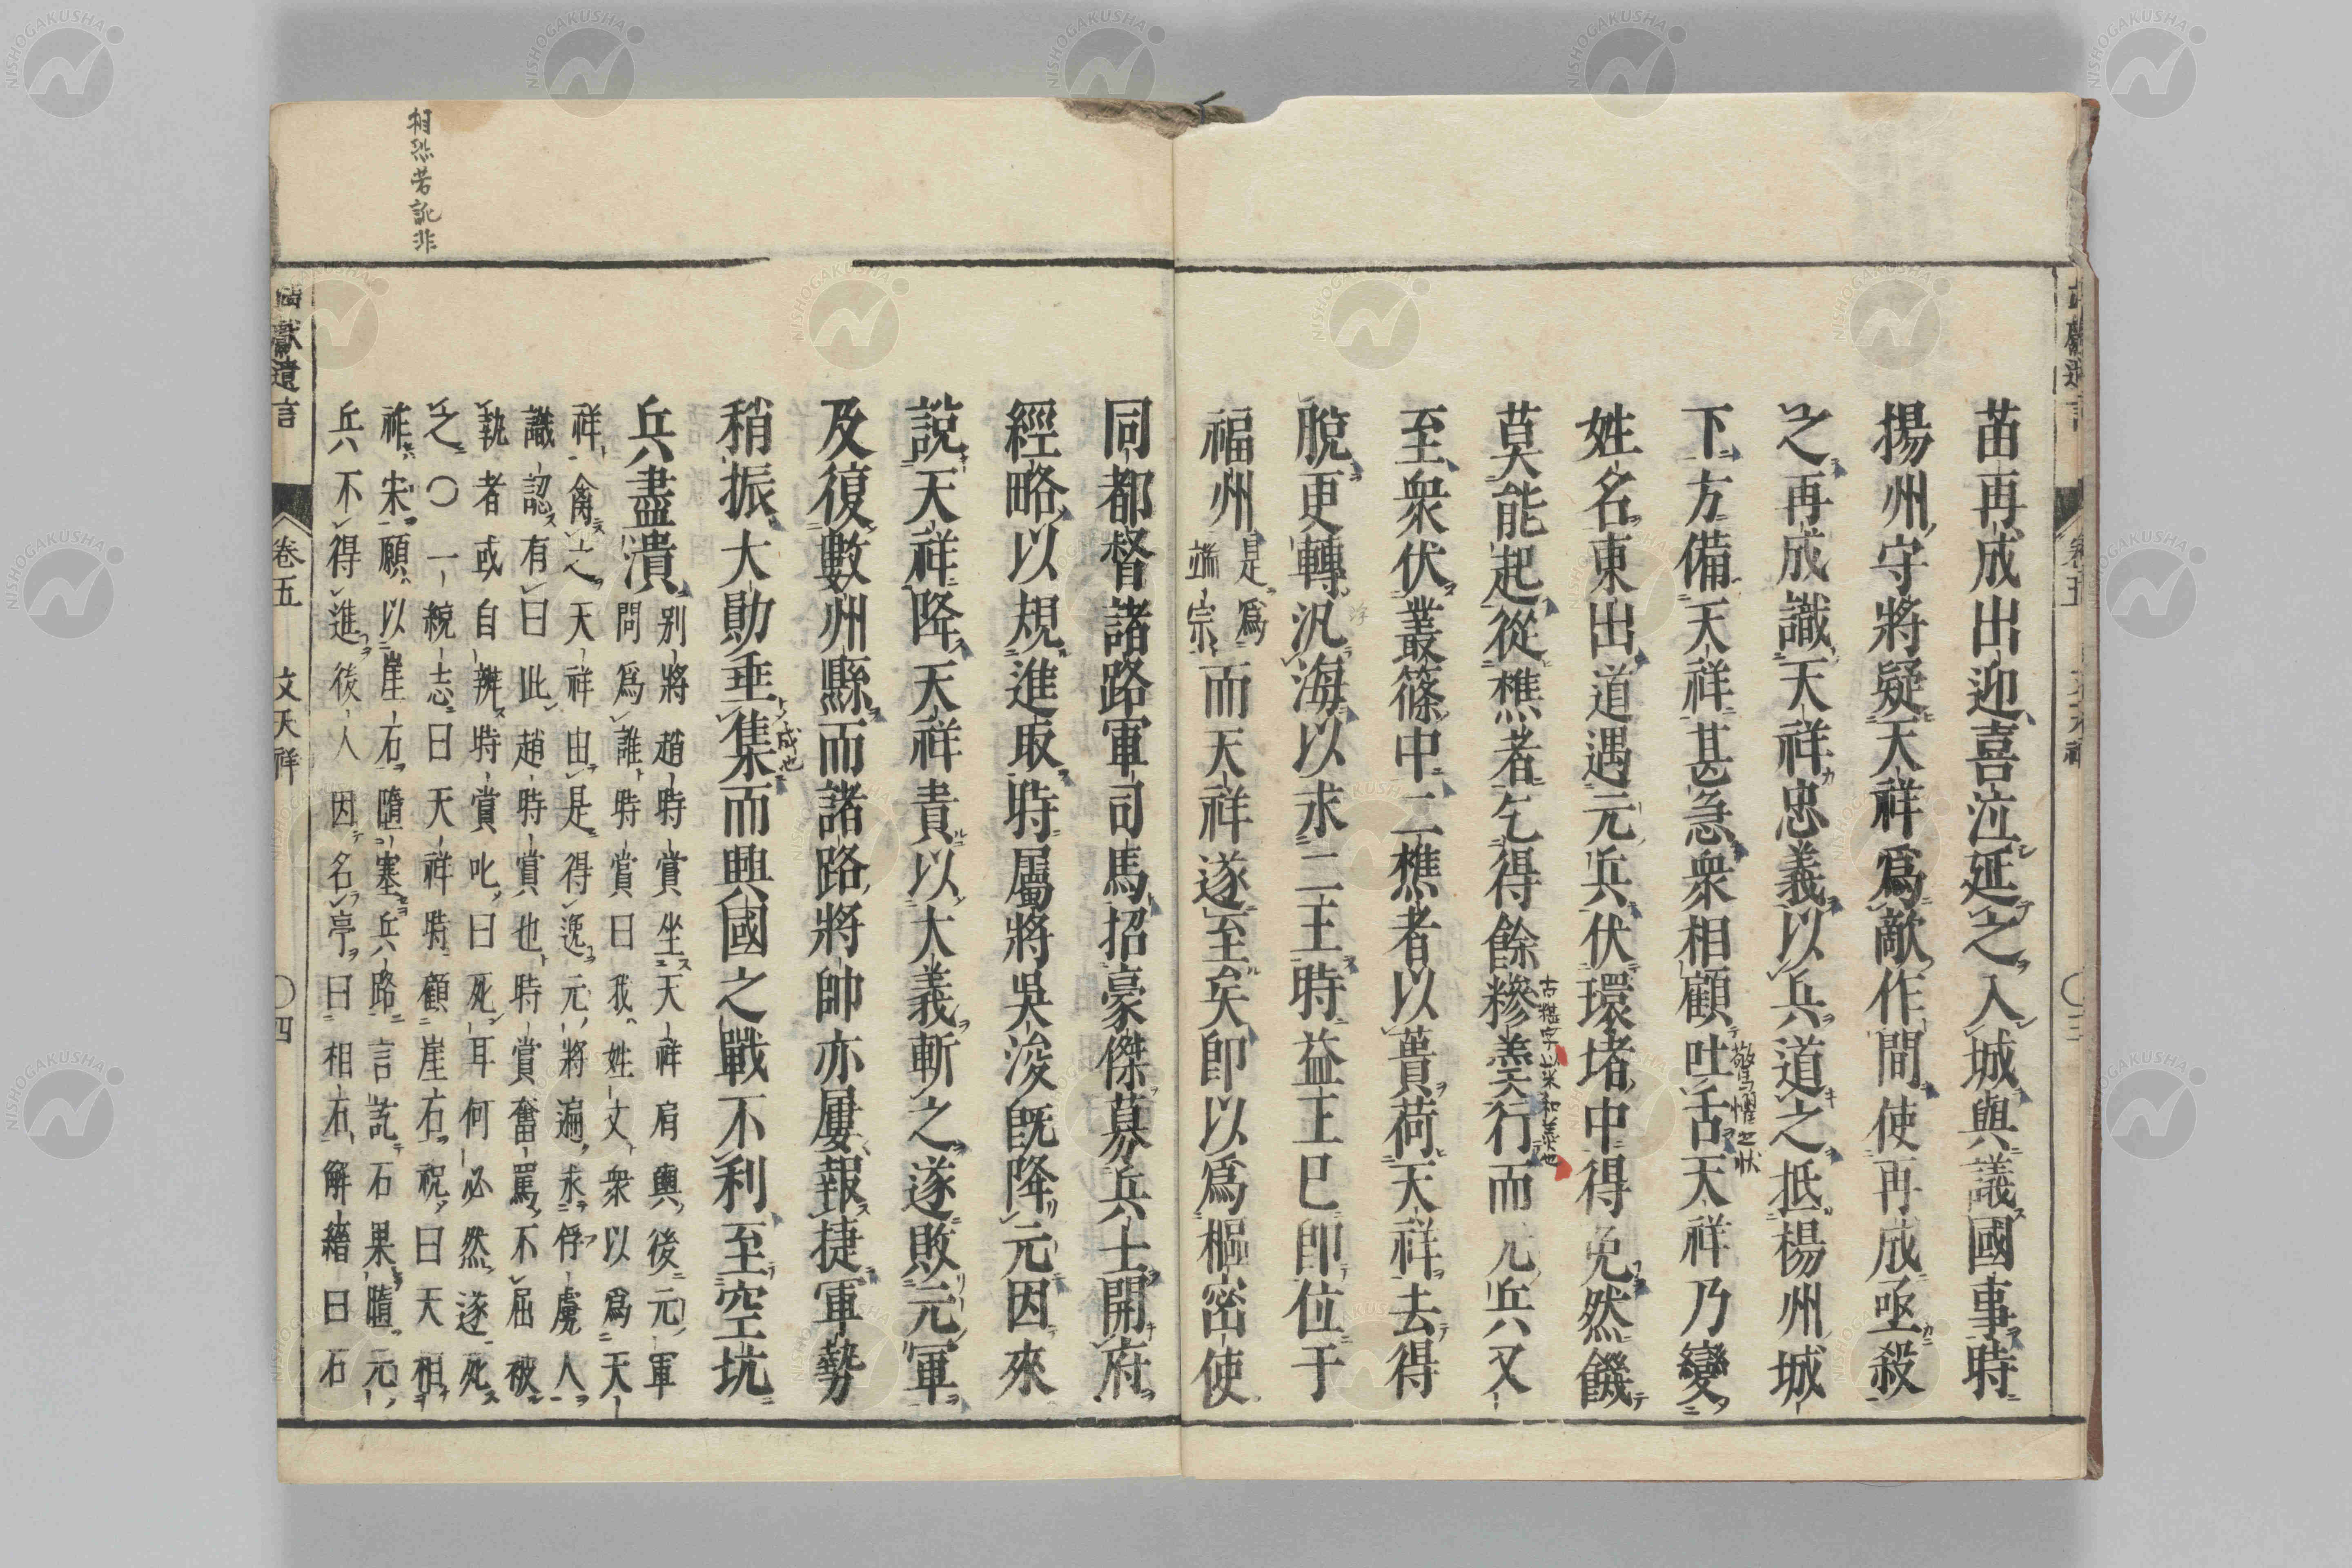 苗再成出迎喜泣延之入城與議國事時
揚州守將疑天祥爲敵作間使再成亟殺
之再成識天祥忠義以兵道之抵楊州城
下方備天祥甚急衆相顧吐舌天祥乃變
驚懼之状
姓名東出道遇元兵伏環堵中得免然饑
莫能起從樵者乞得餘糝羹行而元兵又
古糂字菜和羹也
至衆伏叢篠中二樵者以蕢荷天祥去得
脫更轉汎海以求二王時益王已即位于
福州是爲端宗而天祥遂至矣即以爲樞密使
同都督諸路軍司馬招豪傑募兵士開府
經略以規進取時屬將吳浚既降元因來
説天祥降天祥責以大義斬之遂敗元軍
及復數州縣而諸路將帥亦屢報捷軍勢
稍振大勛垂集而興國之戰不利至空坑
成也
兵盡潰
别將趙時賞坐天祥肩輿後元軍
問爲誰時賞曰我姓文衆以爲天
祥禽之天祥由是得逸元將遍求俘虜人
識認有曰此趙時賞也時賞奮罵不屈被
執者或自辨時賞叱曰死耳何必然遂死
之〇一統志曰天祥時顧崖石祝曰天相
祚宋願以崖石隨塞兵路言訖石果隨元
兵不得進後人因名亭曰相石解縉曰石
相恐若訛非
古獻遺言
卷五
文天祥
〇四
〇三